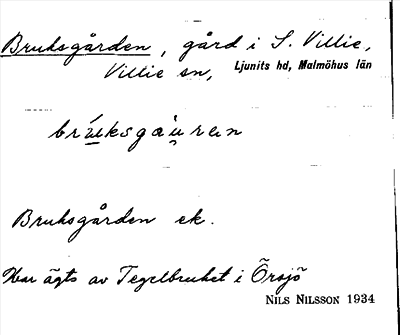 Bruksgården, gård i S. Villie,
Villie sn, Ljunits hd, Malmöhus län
brúuksgàu̯ren
Bruksgården ek.
Har ägts av Tegelbruket i Örsjö
NILS NILSSON 1934